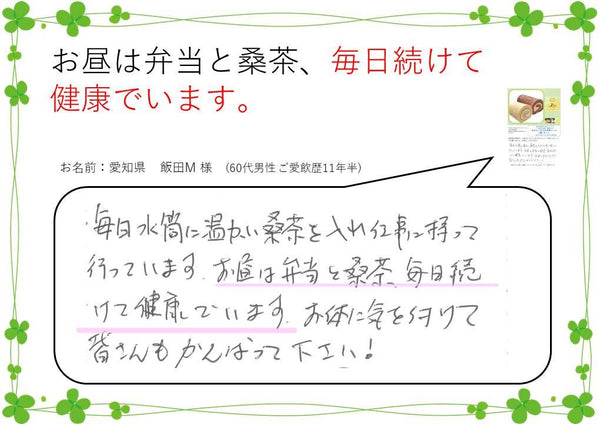 お昼は弁当と桑茶、毎日続けて
健康でいます。
お名前：愛知県　飯田M 様　(60代男性 ご愛飲歴11年半)
毎日水筒に温かい桑茶を入れ仕事に持って
行っています。お昼は弁当と桑茶、毎日続
けて健康でいます。お体に気を付けて
皆さんもがんばって下さい!